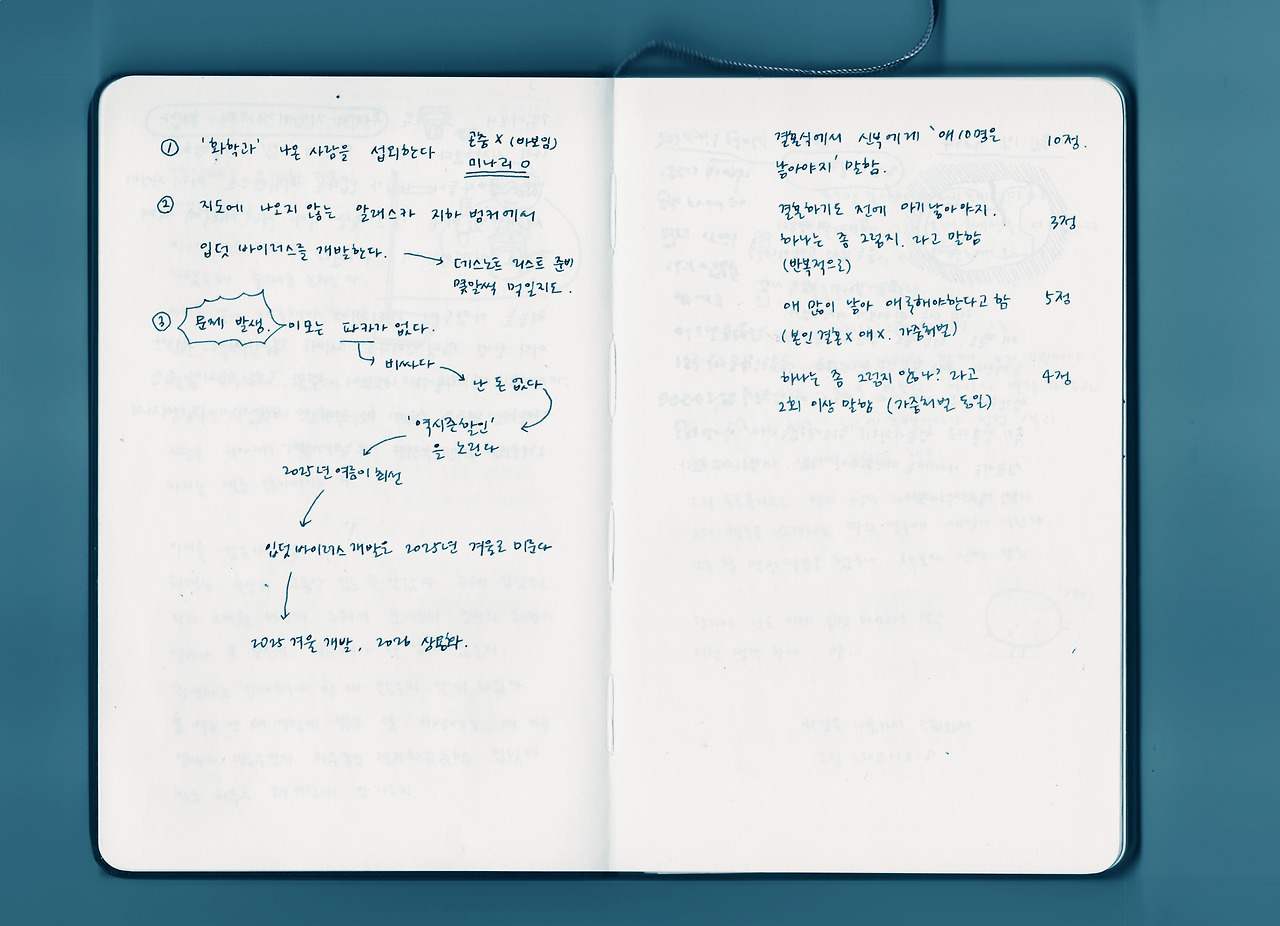 ① '화학과' 나온 사람을 섭외한다
곤충 X (바보임)
미나리 O
② 지도에 나오지 않는 알래스카 지하 벙커에서
입덧 바이러스를 개발한다.
데스노트 리스트 준비
몇알씩 먹일지도.
③ 문제 발생. 이모는 파카가 없다.
비싸다
난 돈 없다
'역시즌할인'
을 노린다
2025년 여름이 최선
입덧 바이러스 개발은 2025년 겨울로 미룬다
2025 겨울 개발, 2026 상용화.
결혼식에서 신부에게 '애 10명은 10정.
낳아야지' 말함.
결혼하기도 전에 아기낳아야지.
하나는 좀 그렇지. 라고 말함 3정
(반복적으로)
애 많이 낳아 애국해야한다고 함 5정
(본인 결혼X 애X. 가중처벌)
하나는 좀 그렇지 않나? 라고 4정
2회 이상 말함 (가중처벌 동일)